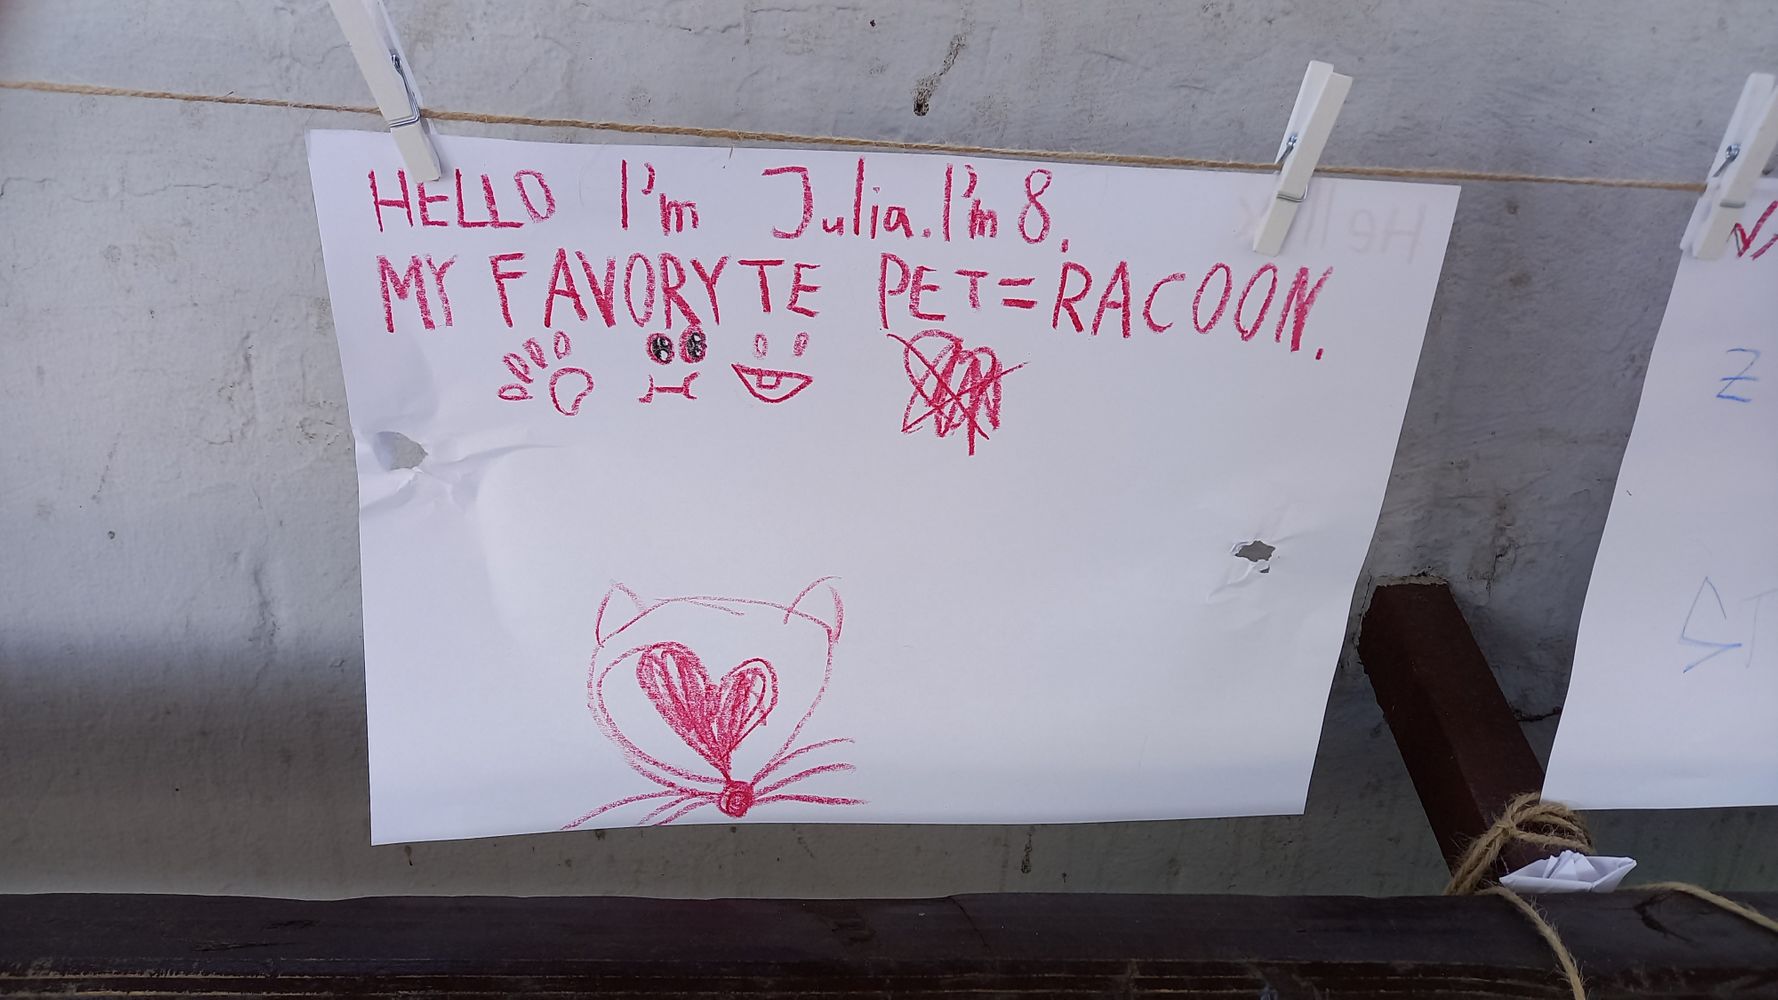 HELLO I'm Julia. I'm 8.
MY FAVORYTE PET=RACOON.
Z